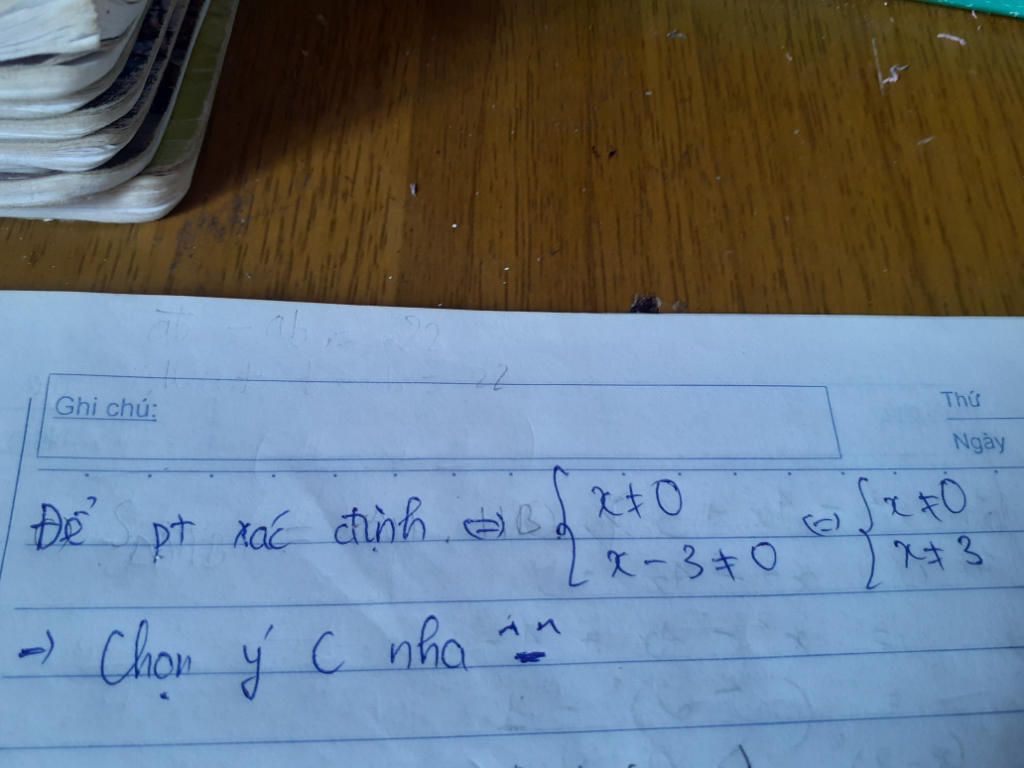 Ghi chú:
Thứ
Ngày
Để pt xác định. <=> { x ≠ 0 <=> { x ≠ 0
x - 3 ≠ 0 x ≠ 3
=> Chọn ý C nha ^-^